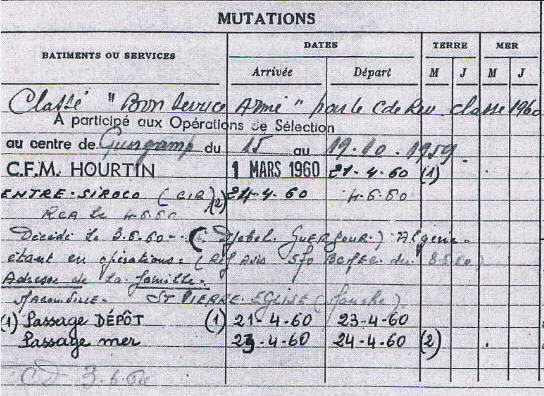 MUTATIONS
BATIMENTS OU SERVICES DATES TERRE MER
Arrivée Départ M J M J
Classé "Bon Service Armé" par le C de Rev classe 1960
A participé aux Opérations de Sélection
au centre de Guingamp du 15 au 19.10.1959.
C.F.M. HOURTIN 1 MARS 1960 21-4-60 (1)
ENTRE-SIROCO (CIR) (2) 24-4-60 4.5.60
RCA le 4.5.60
Décédé le 3.6.60 (Djebel GUERGOUR) Algérie-
étant en opérations. (Ref Avis du
Adresse de la famille.
ST PIERRE EGLISE (Manche)
(1) Passage DÉPÔT (1) 21-4-60 23-4-60
Passage mer 23-4-60 24-4-60 (2)
CD 3.6.60